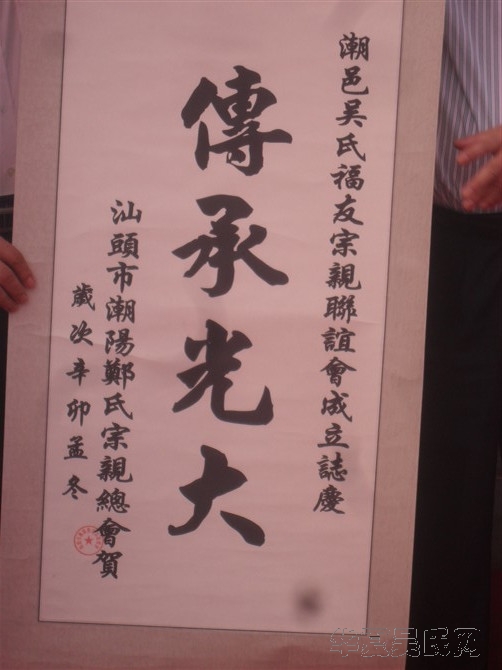 潮邑吴氏福友宗親聯誼會成立誌慶
傳承光大
汕頭市潮陽鄭氏宗親總會賀
歲次辛卯孟冬